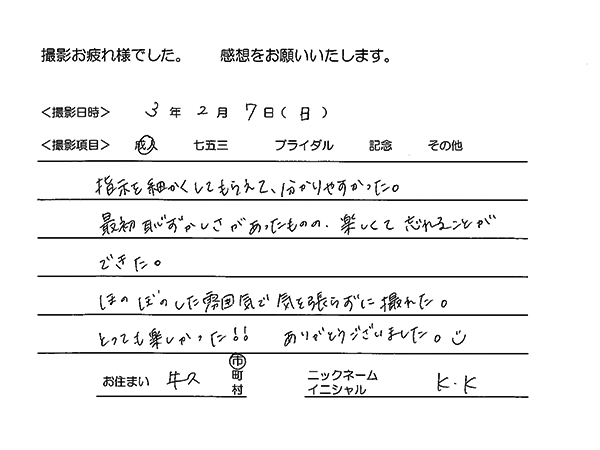 撮影お疲れ様でした。 感想をお願いいたします。
<撮影日時> 3年2月7日(日)
<撮影項目> 成人 七五三 ブライダル 記念 その他
指示を細かくしてもらえて、分かりやすかった。
最初恥ずかしさがあったものの、楽しくて忘れることが
できた。
ほのぼのした雰囲気で気を張らずに撮れた。
とっても楽しかった!! ありがとうございました。
お住まい 牛久 市 町 村 ニックネーム イニシャル K.K